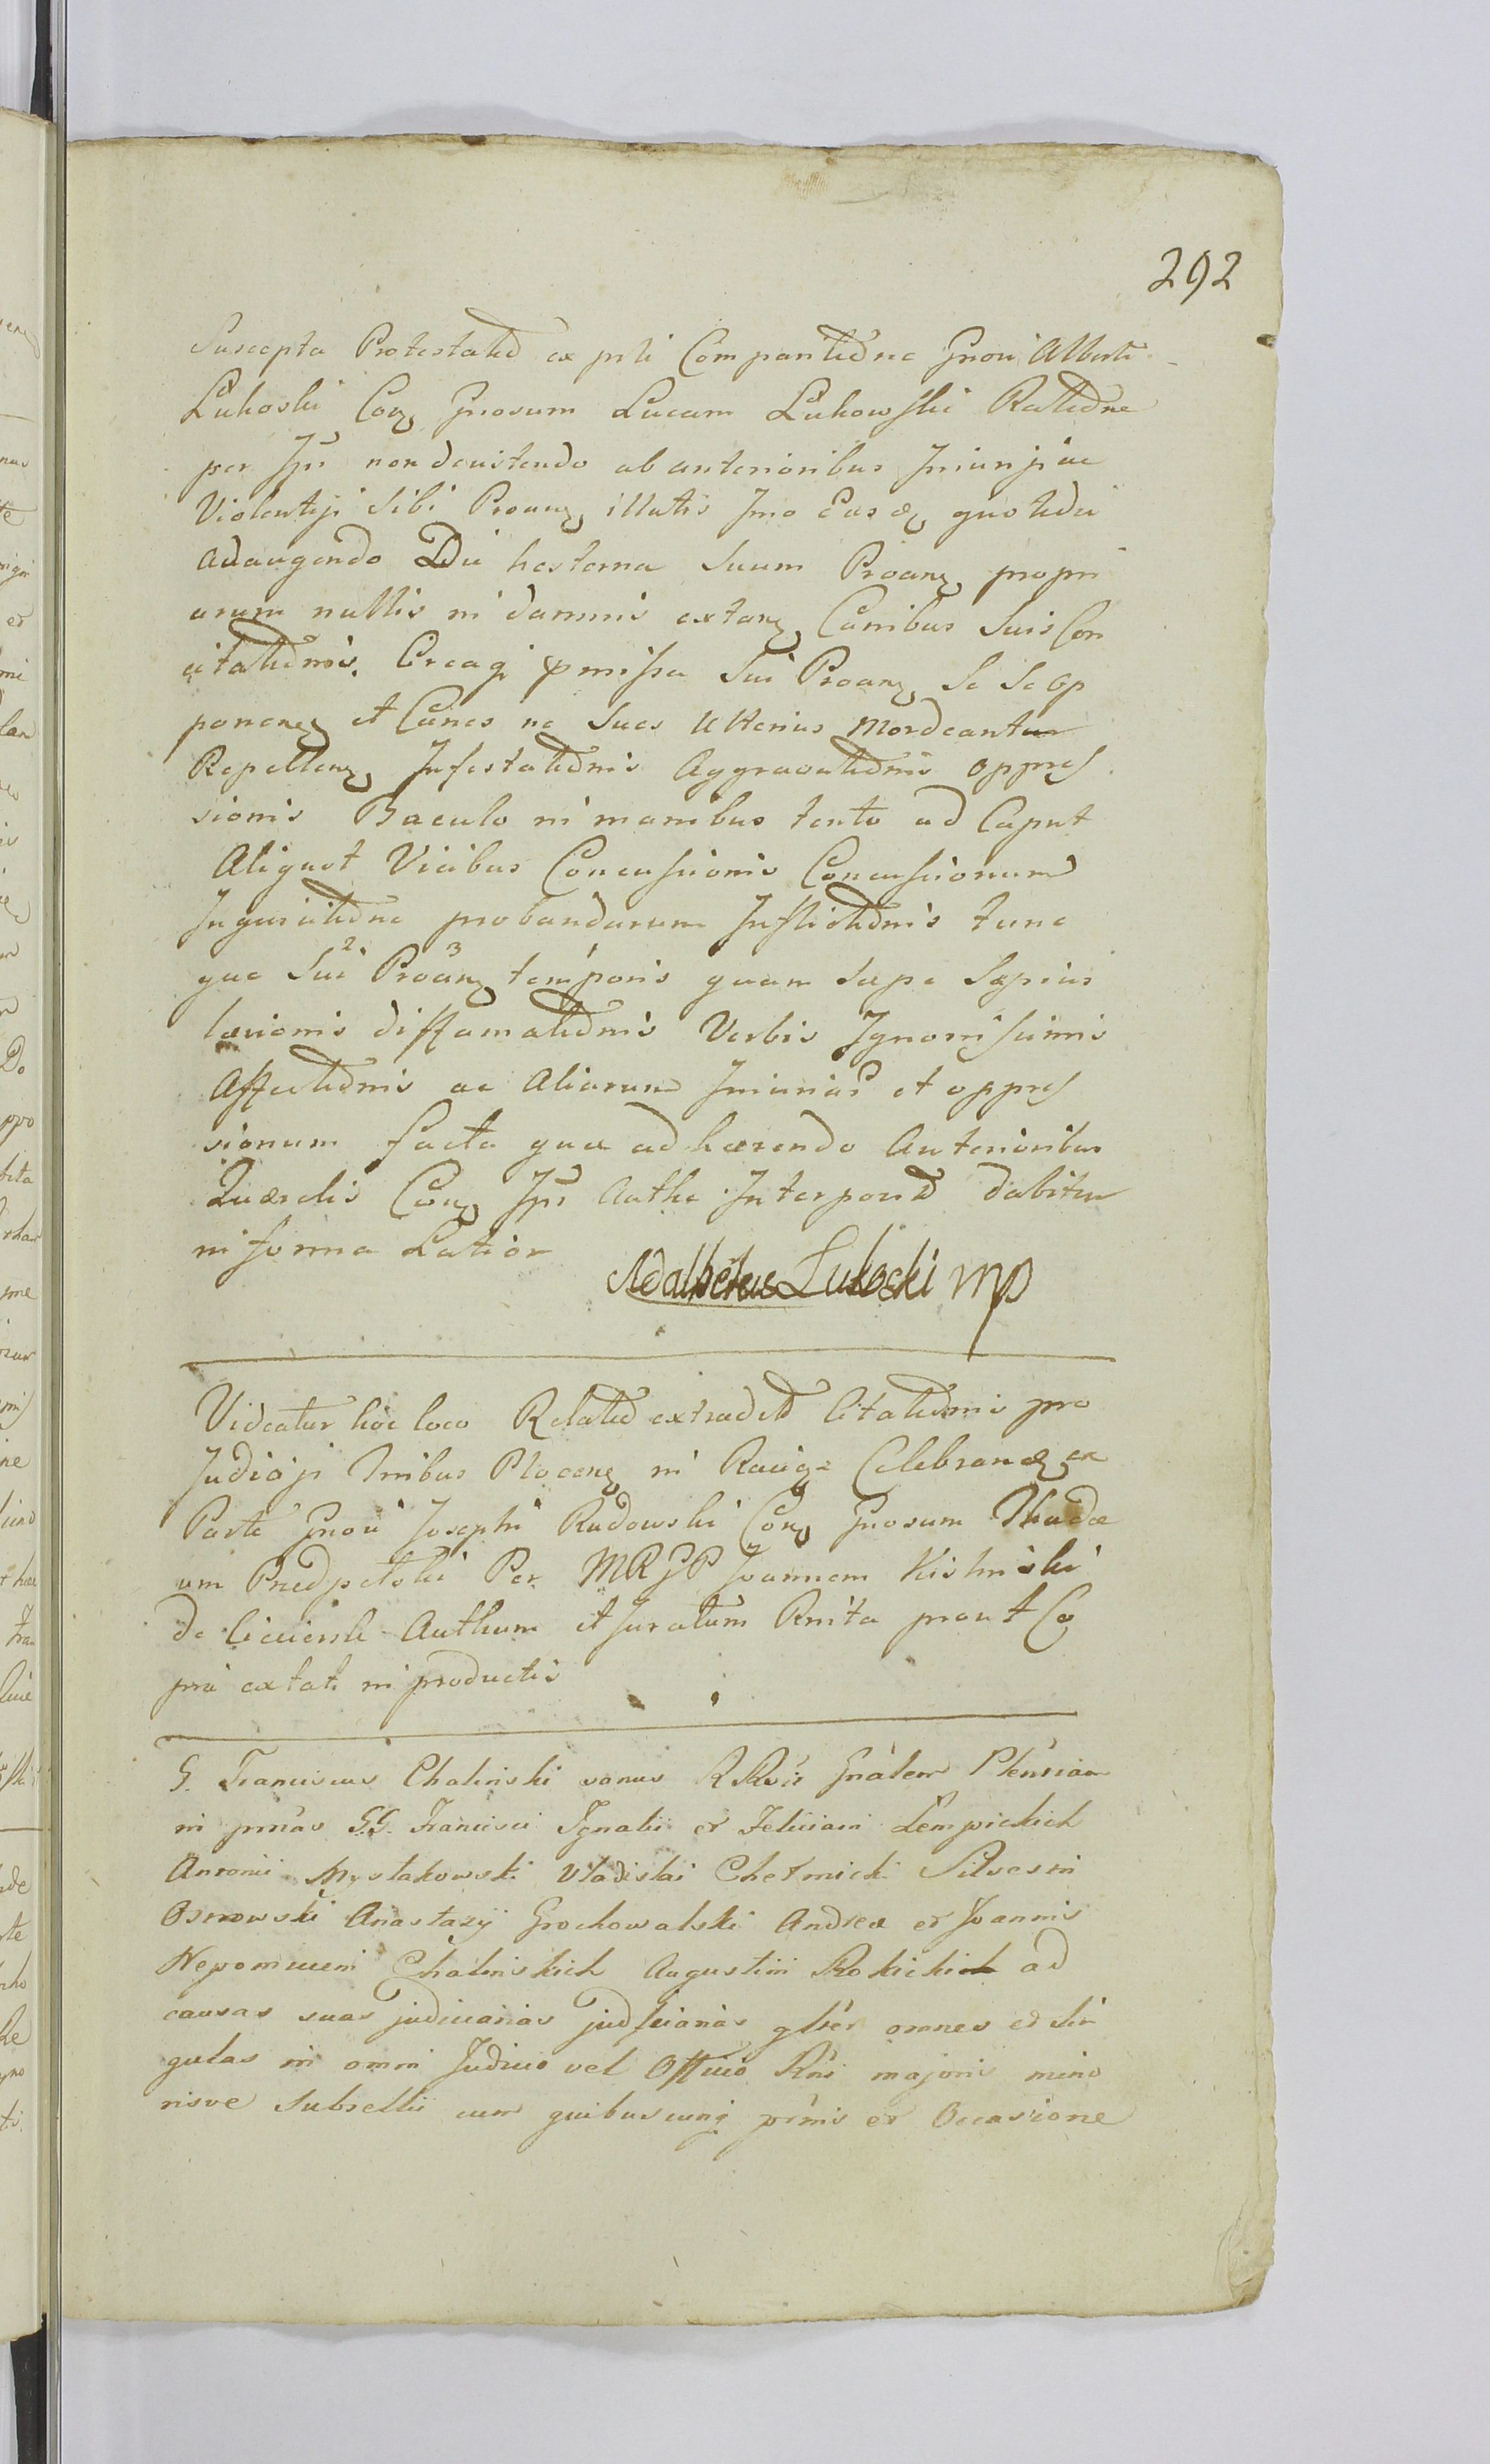 292
Suscepta Protestatio ex prti Comparitione Gnosi Alberti
Lukoski Con Gnosum Lucam Lukowski Ratione
per Ipm non desistendo ab anterioribus Injurijs ac
Violentijs Sibi Proan illatis Imo Eas quotidie
adaugendo Die hesterna Suum Proan propri
arum nullis in damnis extan Canibus Suis Con
citationis. Circaq pmissa Sui Proan Se Se Op
ponen et Canes ne Sues Ulterius Mordeantur
Repellen Infestationis Aggravationis oppres
sionis Baculo in manibus tento ad Caput
Aliquot Vicibus Concussionis Concussionum
Inquisitione probandarum Inflictionis tunc
que Sui 2 Proan 3 temporis 1 quam Sæpe Sæpius
læsionis diffamationis Verbis Ignomissimis
Affectionis ac Aliarum Injuriar et oppres
sionum facta qua adhærendo Anterioribus
Querelis Con Ipm Authe Interposita dabitur
in forma Latiori
Adalbertus Lukocki mp
Videatur hoc loco Relatio extradit Citationis pro
Judicijs Tribus Plocen in Raciąz Celebran ex
Parte Gnosi Josephi Rudowski Con Gnosum Thadæ
um Przedpełski Per MRGP Joannem Kisinski
de Ciciersk Authum et Juratum Rnita prout Co
pia extat in productis
G. Franciscus Chalinski sanus RRcit Gnalem Plenriam
in prnas GG. Francisci Ignatii et Feliciani Lempickich
Antonii Mystakowski Vladislai Chełmicki Silvestri
Osnowski Anastazij Grochowalski Andreæ et Joannis
Nepomuceni Chalinskich Augustini Rokickich ad
causas suas judiciarias judicianas glter omnes et sin
gulas in omni Judicio vel Officio Rni majoris mino
risve Subsellii cum quibuscunq prnis et Occasione